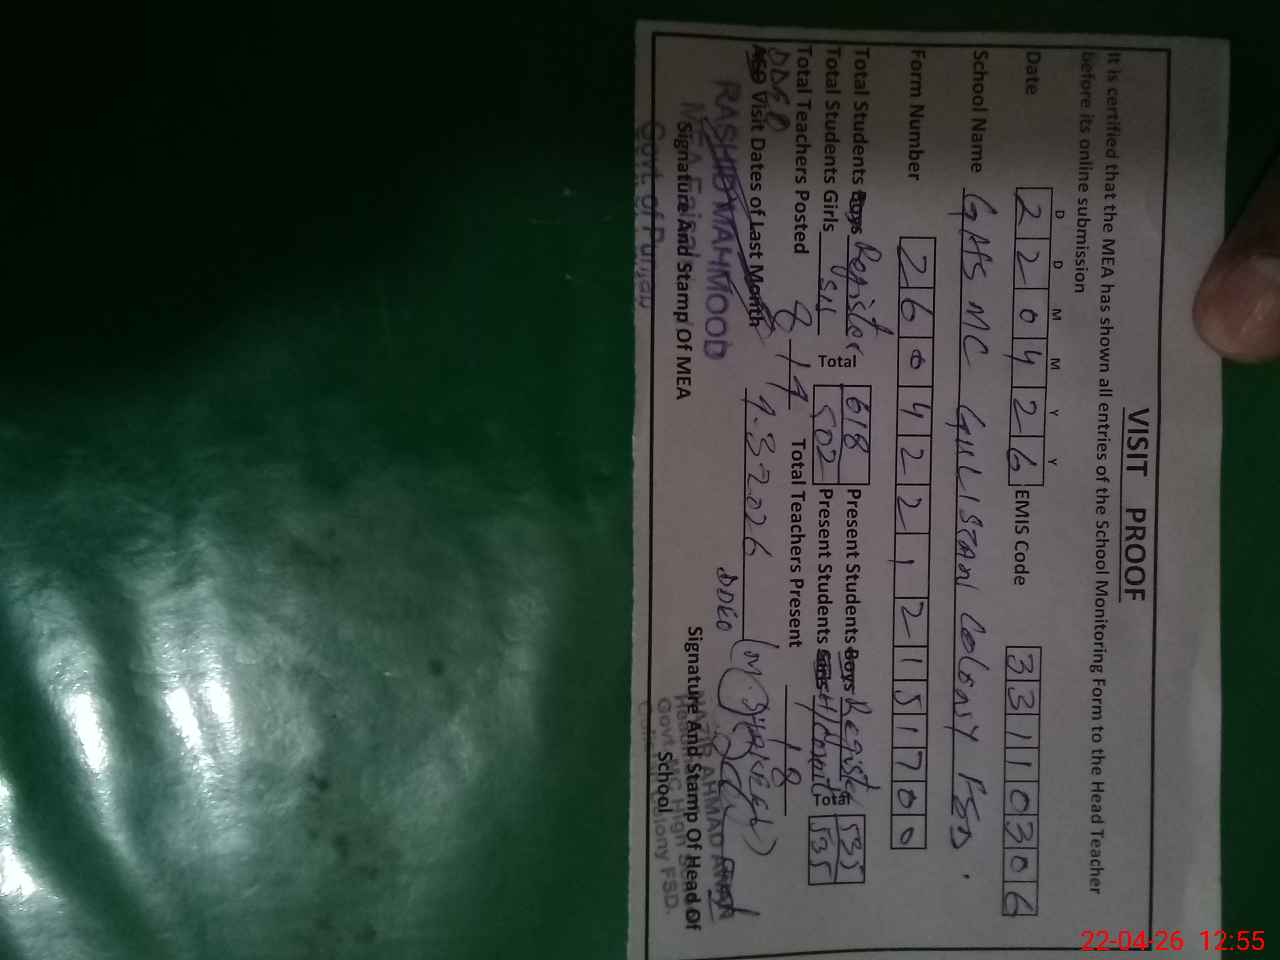 VISIT PROOF
It is certified that the MEA has shown all entries of the School Monitoring Form to the Head Teacher
before its online submission
D D M M Y Y
Date 220426 EMIS Code 33110306
School Name GHS MC GULISTAN Colony FSD.
Form Number 26042212151700
Total Students Boys Register Total 618 Present Students Boys Register 535
Total Students Girls Total 502 Present Students Girls H/Count Total 535
Total Teachers Posted 19 Total Teachers Present 18
DDEO
AEO Visit Dates of Last Month 9.3.2026
DDEO
RASHID MAHMOOD
Signature And Stamp Of MEA
Govt. of Punjab
Signature And Stamp Of Head Of
School
22-04-26 12:55